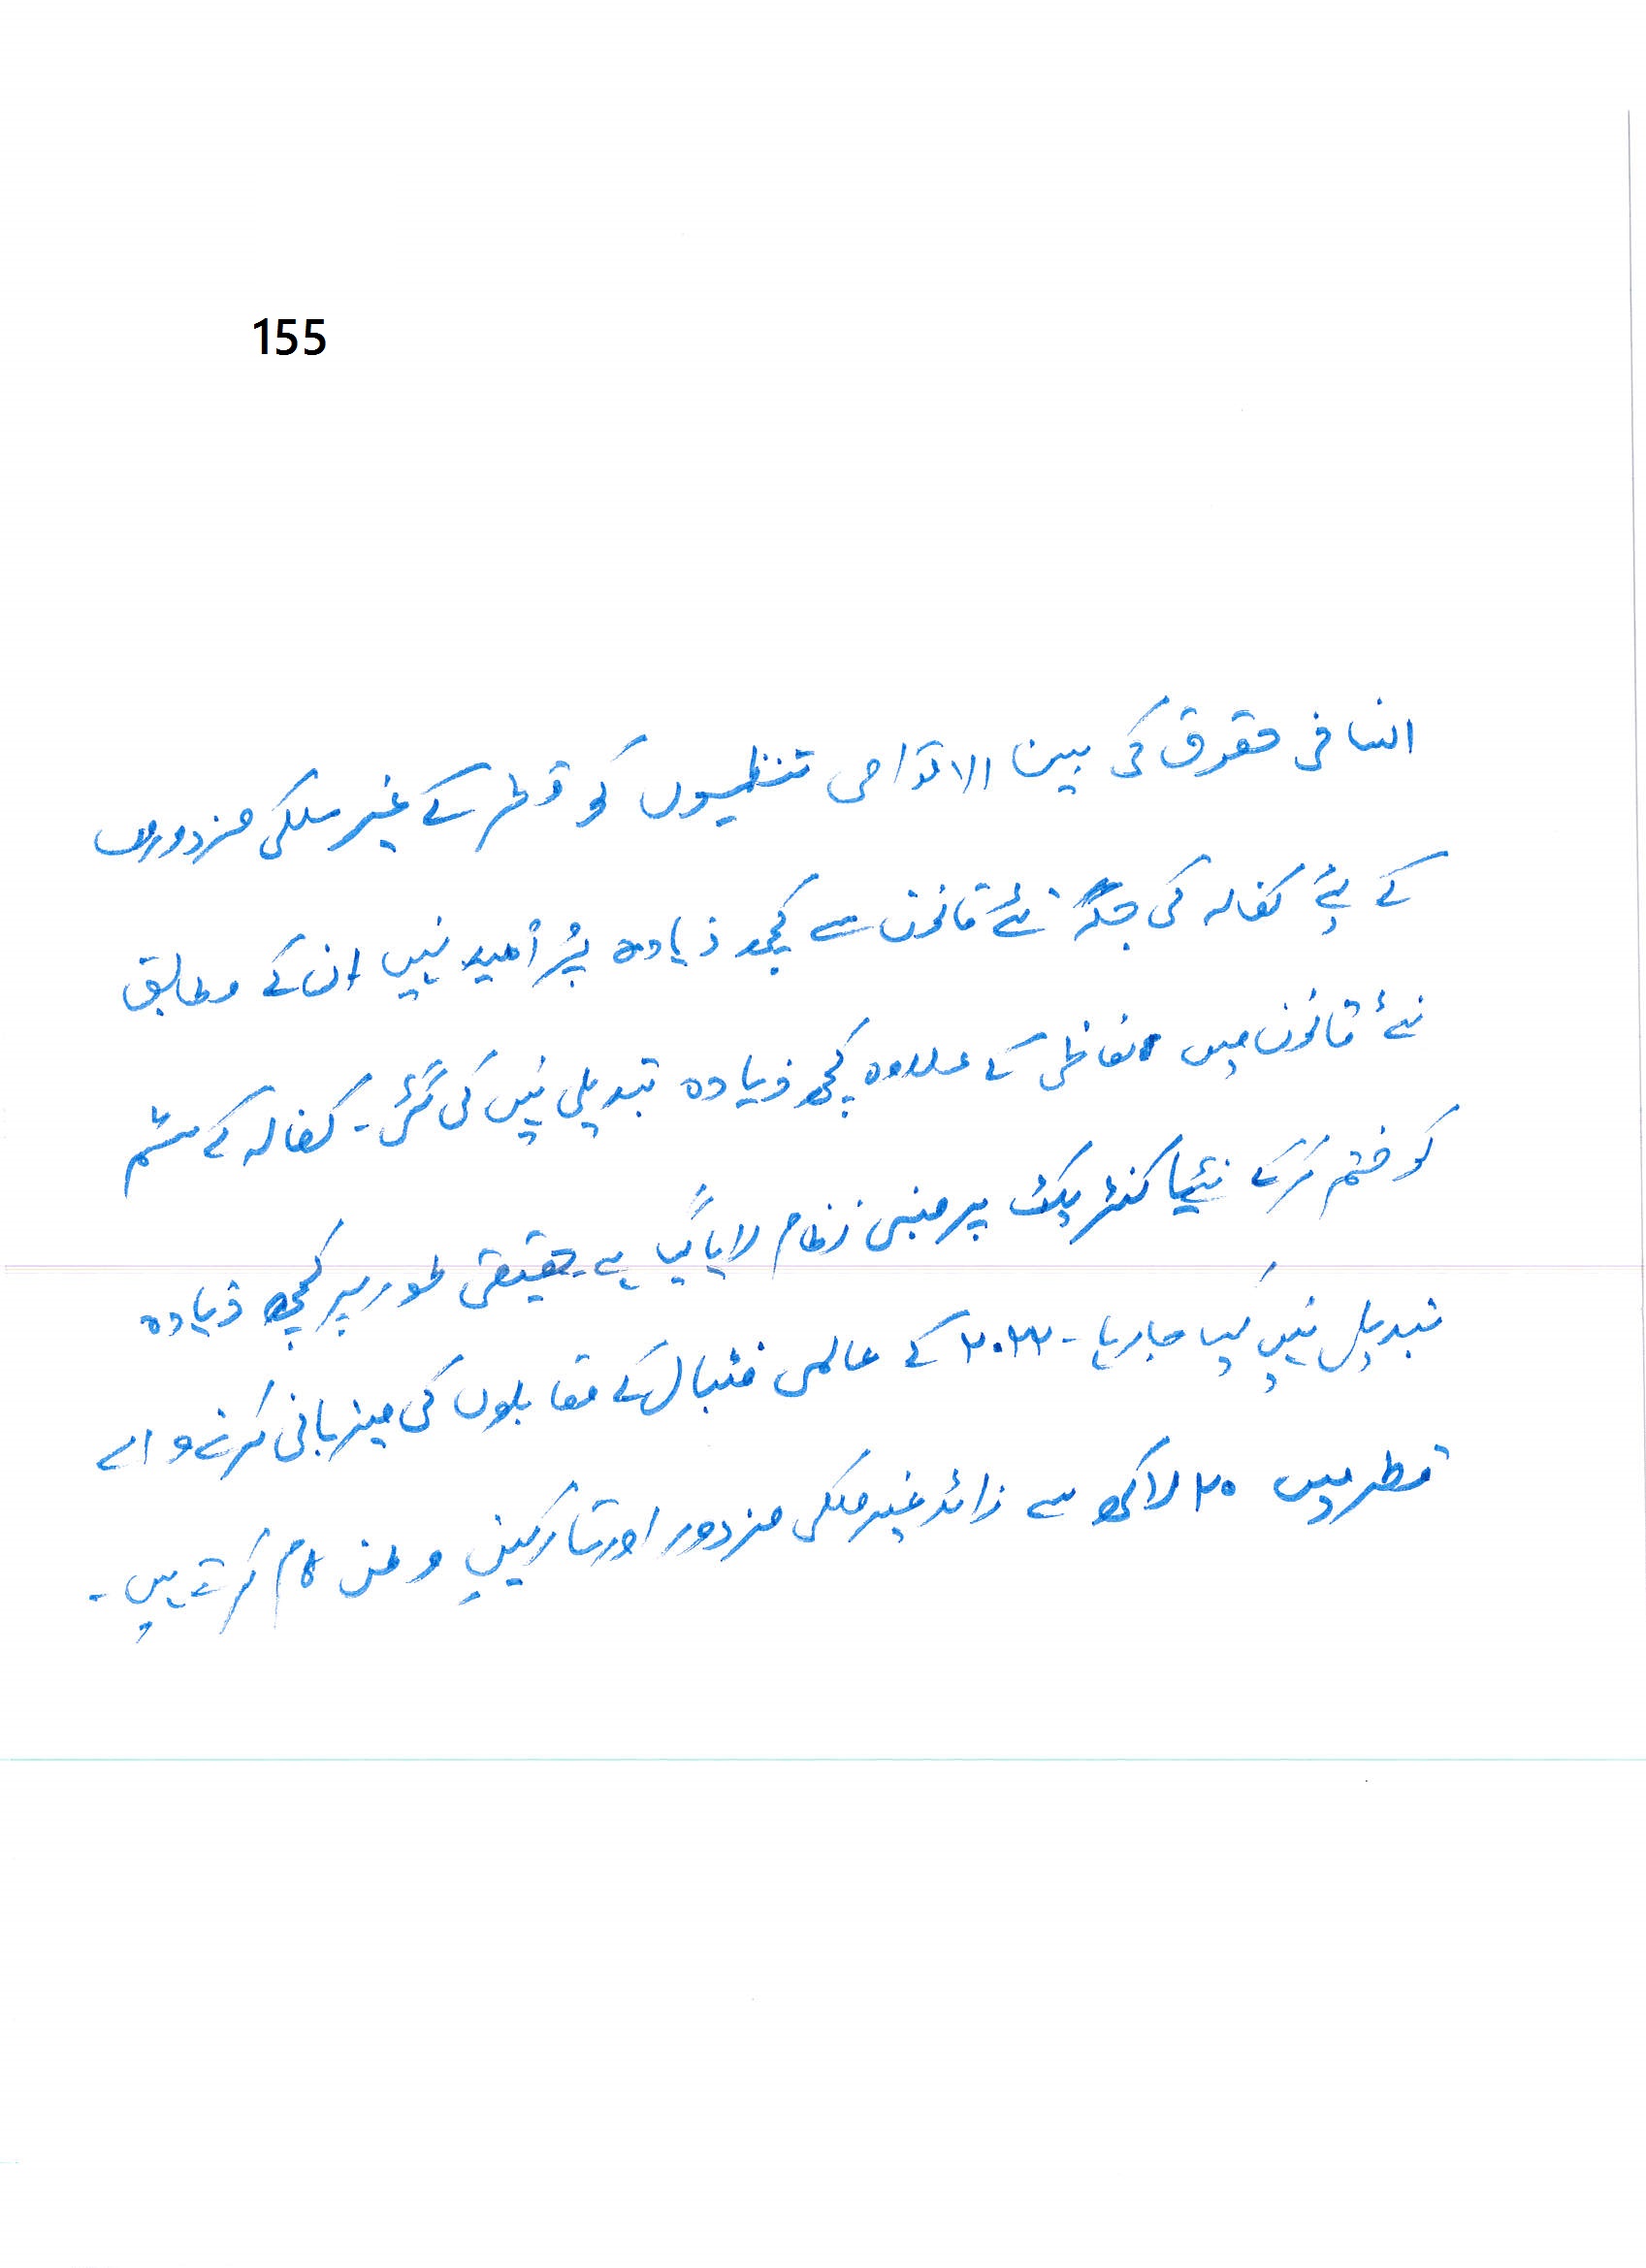 155
انسانی حقوق کی بین الاقوامی تنظیموں کو قطر کے غیر ملکی مزدوروں
کے لئے کفالہ کی جگہ نئے قانون سے کچھ زیادہ پُر اُمید نہیں ان کے مطابق
نئے قانون میں لفاظی کے علاوہ کچھ زیادہ تبدیلی نہیں کی گئی۔ کفالہ کے سسٹم
کو ختم کرکے نیا کنٹریکٹ پر مبنی نظام لایا گیا ہے۔ حقیقی طور پر کچھ زیادہ
تبدیل نہیں کیا جارہا۔ ۲۰۲۲ کے عالمی فٹبال کے مقابلوں کی میزبانی کرنے والے
قطر میں ۲۰ لاکھ سے زائد غیر ملکی مزدور اور تارکین وطن کام کرتے ہیں۔